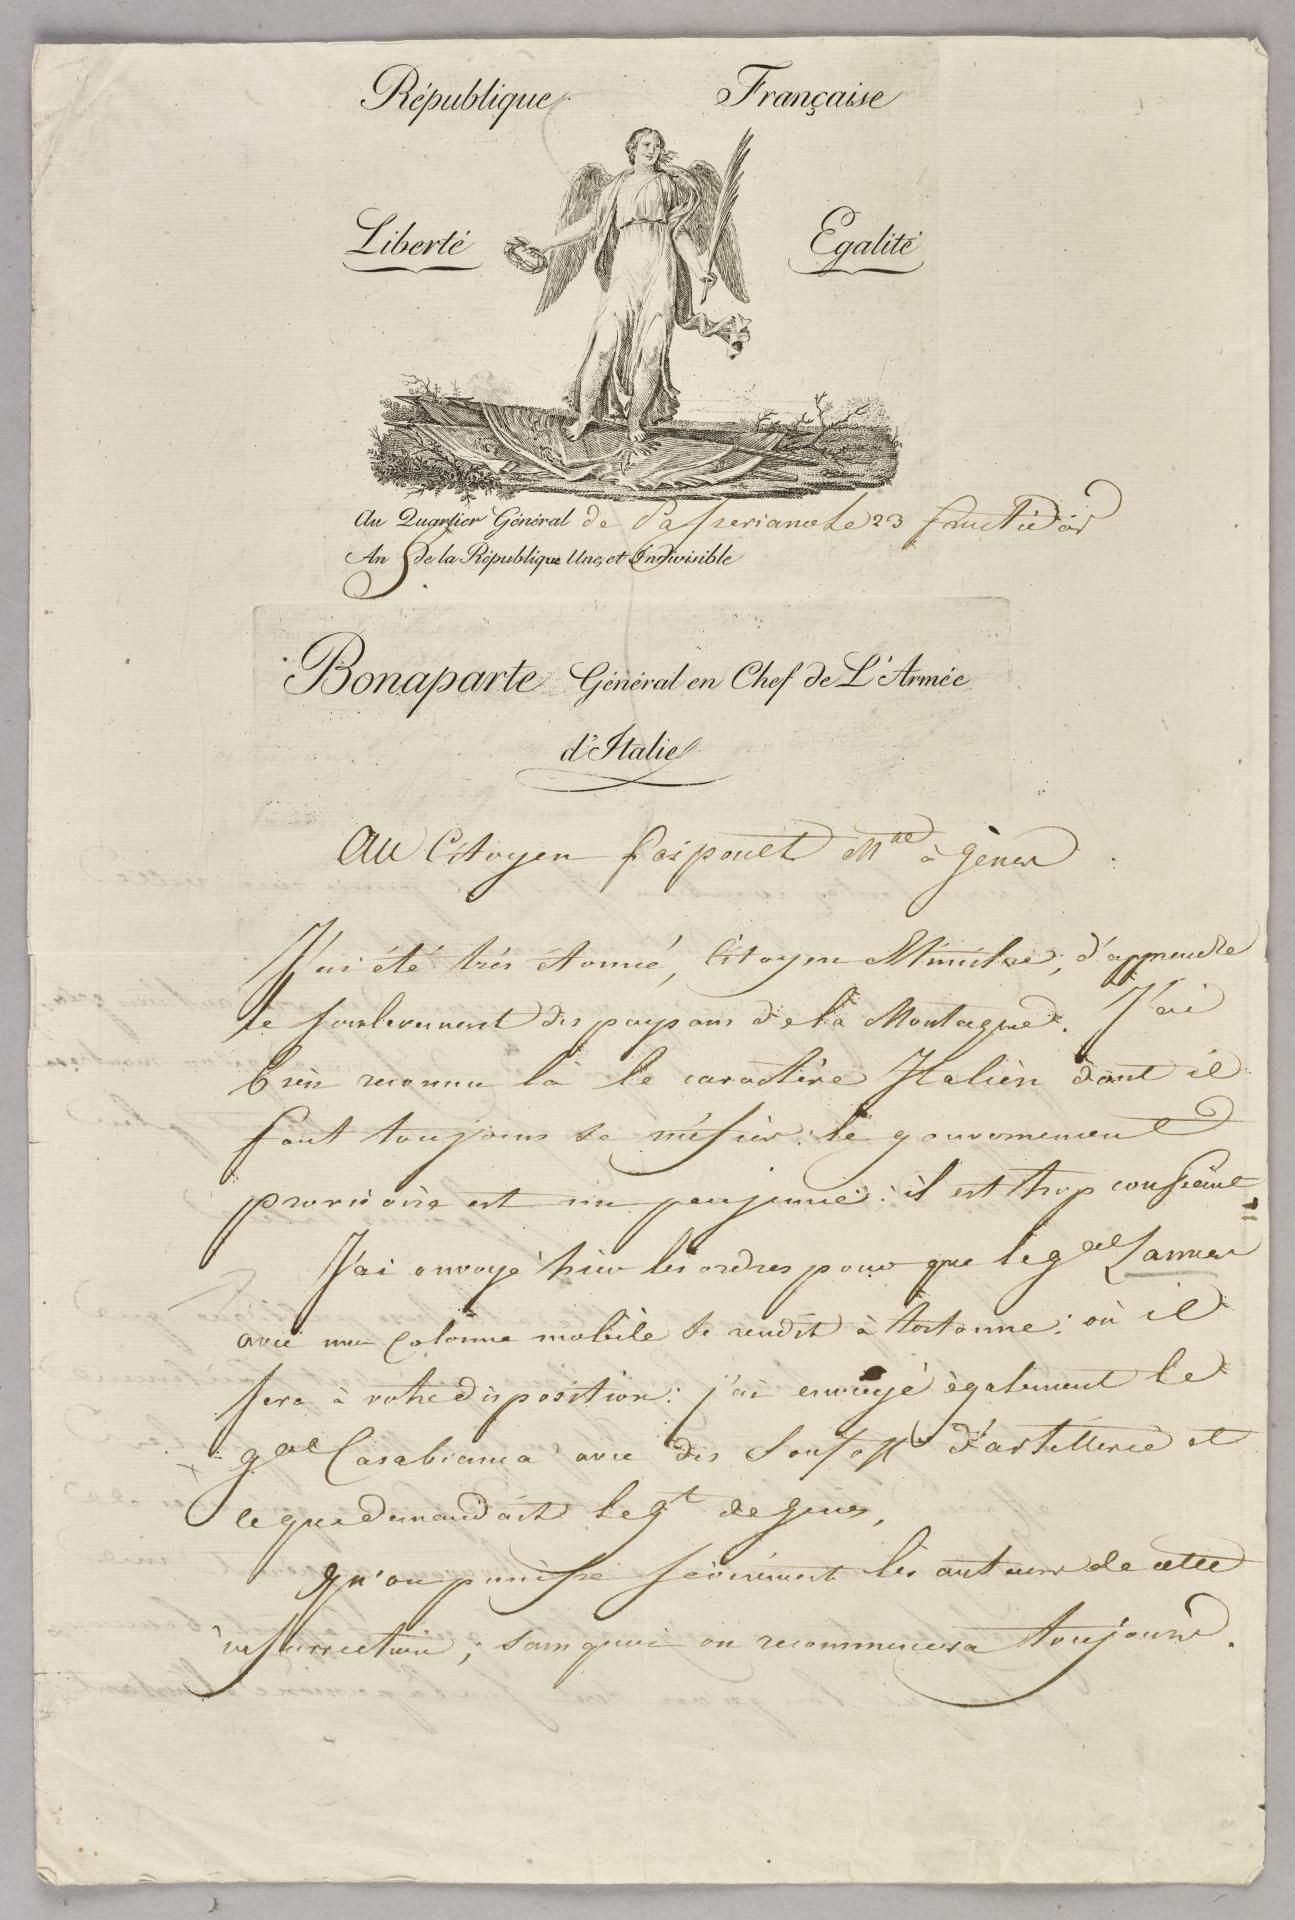 République Française
Liberté Egalité
Au Quartier Général de Passeriano le 23 fructidor
An 5 de la République Une, et Indivisible
Bonaparte Général en Chef de L'Armée
d'Italie
Au Citoyen faipoult M^re à gênes
J'ai été très étonné, Citoyen Ministre, d'apprendre
le soulevement des paysans de la Montagne. J'ai
bien reconnu là le caractère Italièn dont il
faut toujours se méfièr: le gouvernement
provisoire est un peu jeune: il est trop confiant
J'ai envoyé hier les ordres pour que le g^al Lannes
avec une Colonne mobile se rendit à tortonne: où il
sera à votre disposition: j'ai envoyé également le
g^al Casabianca avec des Sous off^s d'artillerie et
ce que demandoit le g^t de gènes,
qu'on punisse sévèrement les auteurs de cette
insurrection; sans quoi on recommencera toujours.